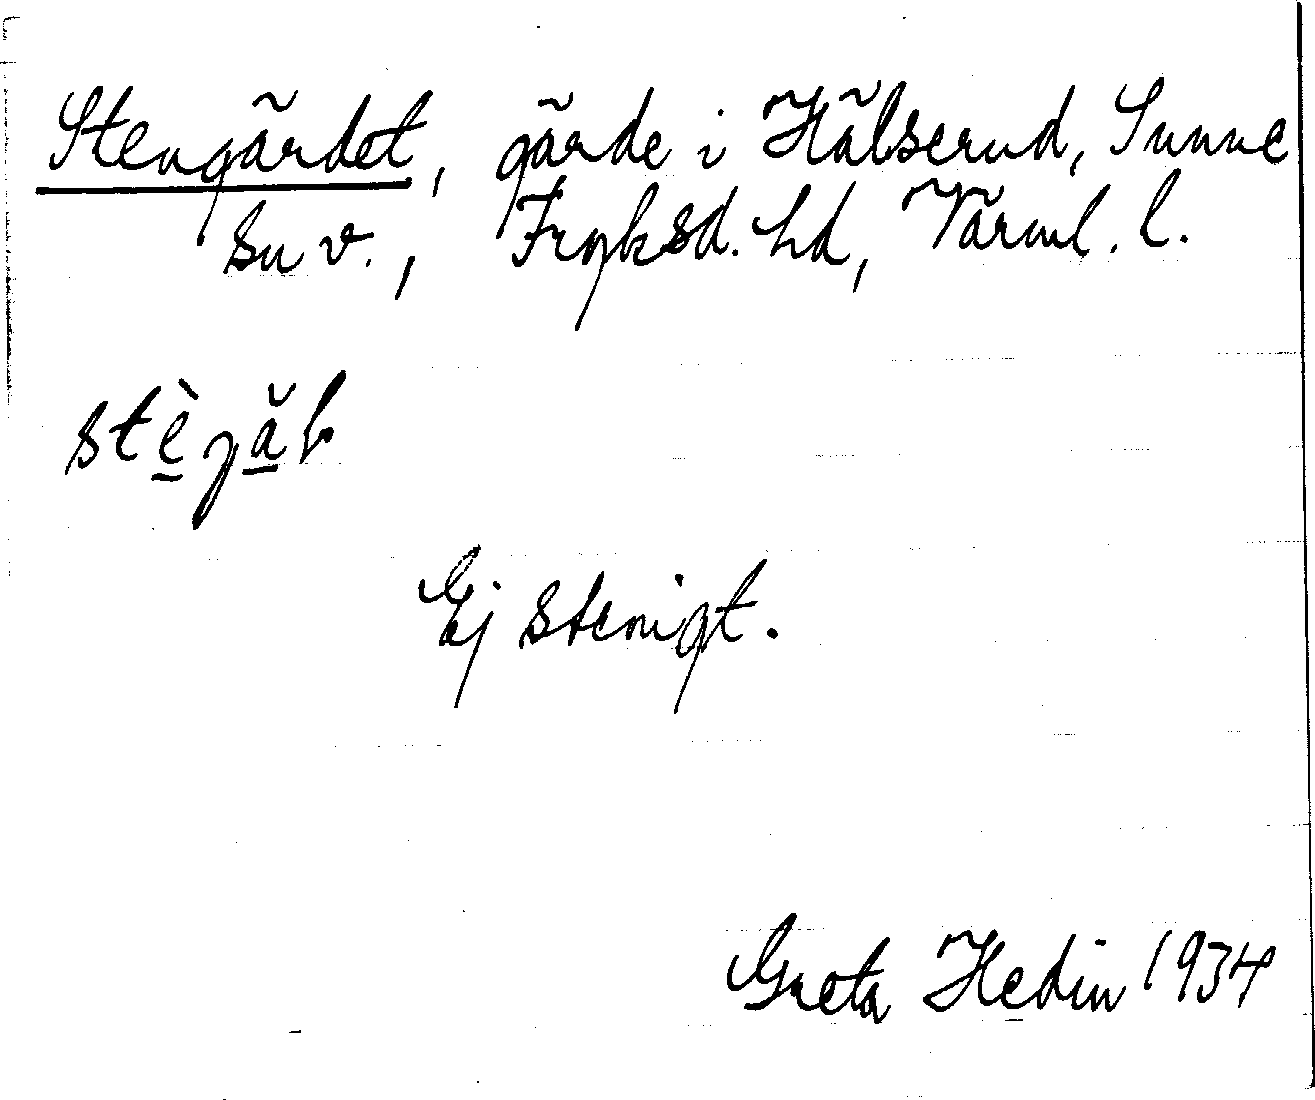 Stengärdet, gärde i Hälserud, Sunne
sn v., Fryksd. hd, Värml. l.
Ej stenigt.
Greta Hedin 1934